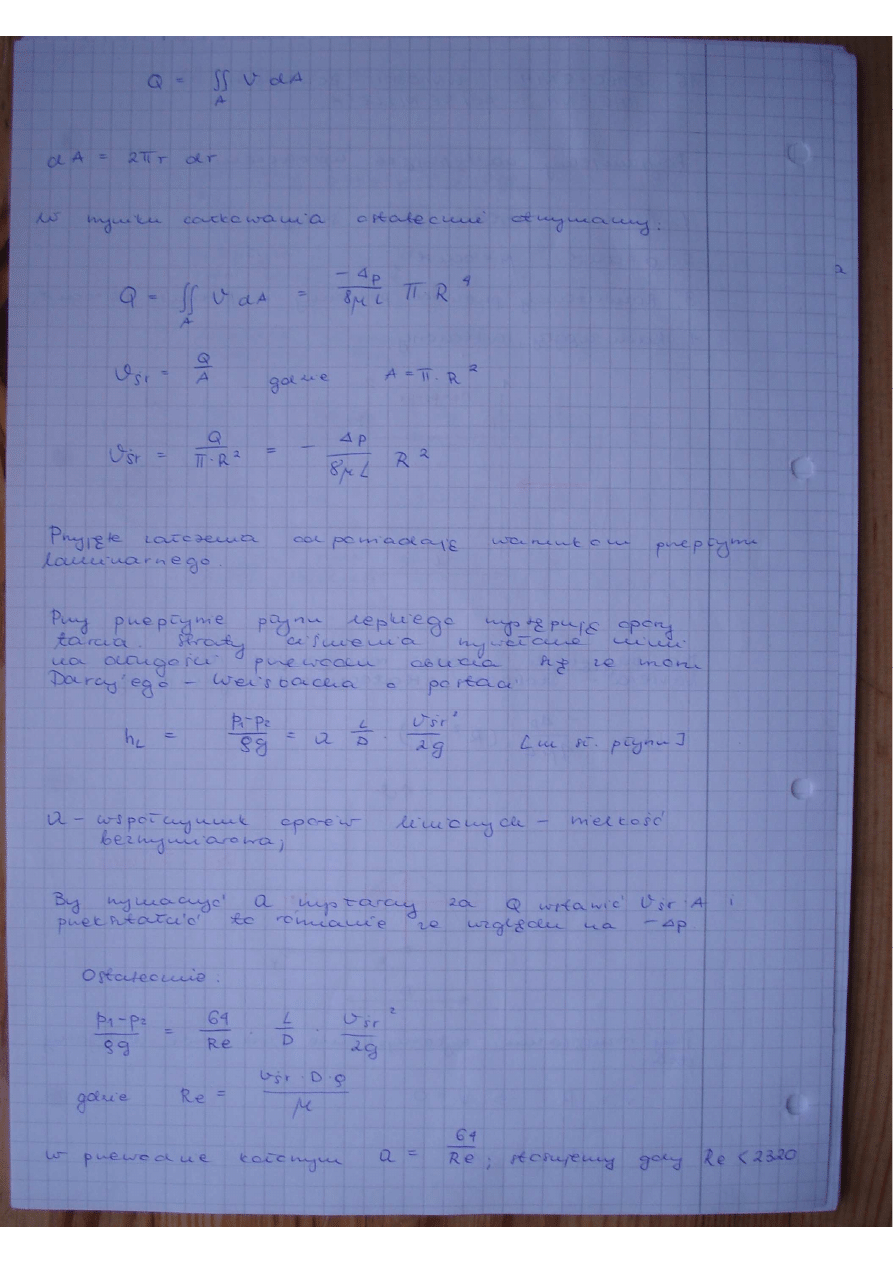 Q = ∬_A v dA
dA = 2πr dr
W wyniku całkowania ostatecznie otrzymamy:
Q = ∬_A v dA = -Δp/(8μL) π R^4
v_śr = Q/A gdzie A = π · R^2
v_śr = Q/(π·R^2) = - Δp/(8μL) R^2
Przyjęte założenia odpowiadają warunkom przepływu
laminarnego.
Przy przepływie płynu lepkiego występują opory
tarcia. Straty ciśnienia wywołane nimi
na długości przewodu oblicza się ze wzoru
Darcy'ego - Weisbacha o postaci
h_L = (p1-p2)/(ρg) = λ L/D · v_śr^2/(2g) [m sł. płynu]
λ - współczynnik oporów liniowych - wielkość
bezwymiarowa;
By wyznaczyć λ wystarczy za Q wstawić v_śr · A i
przekształcić to równanie ze względu na -Δp
Ostatecznie.
(p1-p2)/(ρg) = 64/Re · L/D · v_śr^2/(2g)
gdzie Re = (v_śr · D · ρ)/μ
w przewodzie kołowym λ = 64/Re ; stosujemy gdy Re < 2320